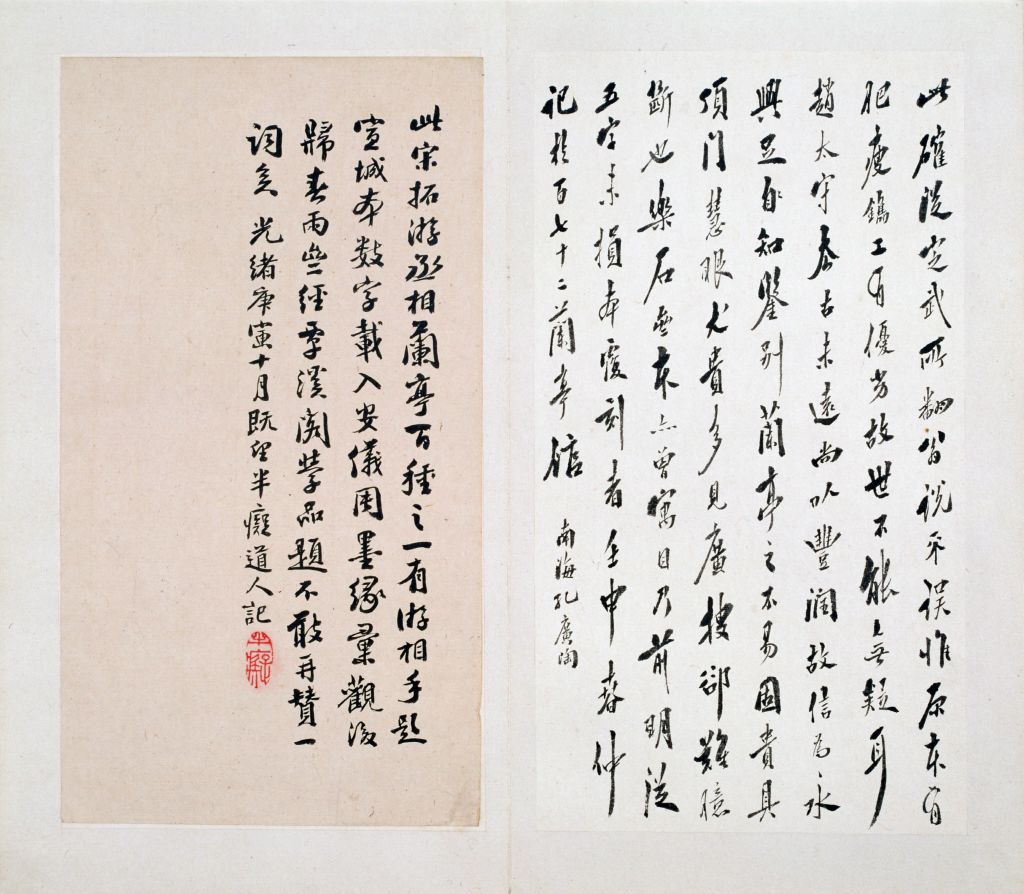 此確從定武所翻前說不誤惟原本有
肥瘦鐫工有優劣故世不能無疑耳
趙太守去古未遠尚以豐潤故信為永
興豆自知鑒別蘭亭之不易固貴具
頂門慧眼尤貴多見廣搜卻難臆
斷也樂石無本亦曾寓目乃前明從
五字未損本覆刻者壬申春仲
記於百七十二蘭亭館 南海孔廣陶
此宋拓游丞相蘭亭百種之一有游相手題
宣城本數字載入安儀周墨緣彙觀後
歸春雨堂經覃溪閣學品題不敢再贊一
詞矣 光緒庚寅十月既望半癡道人記
半癡